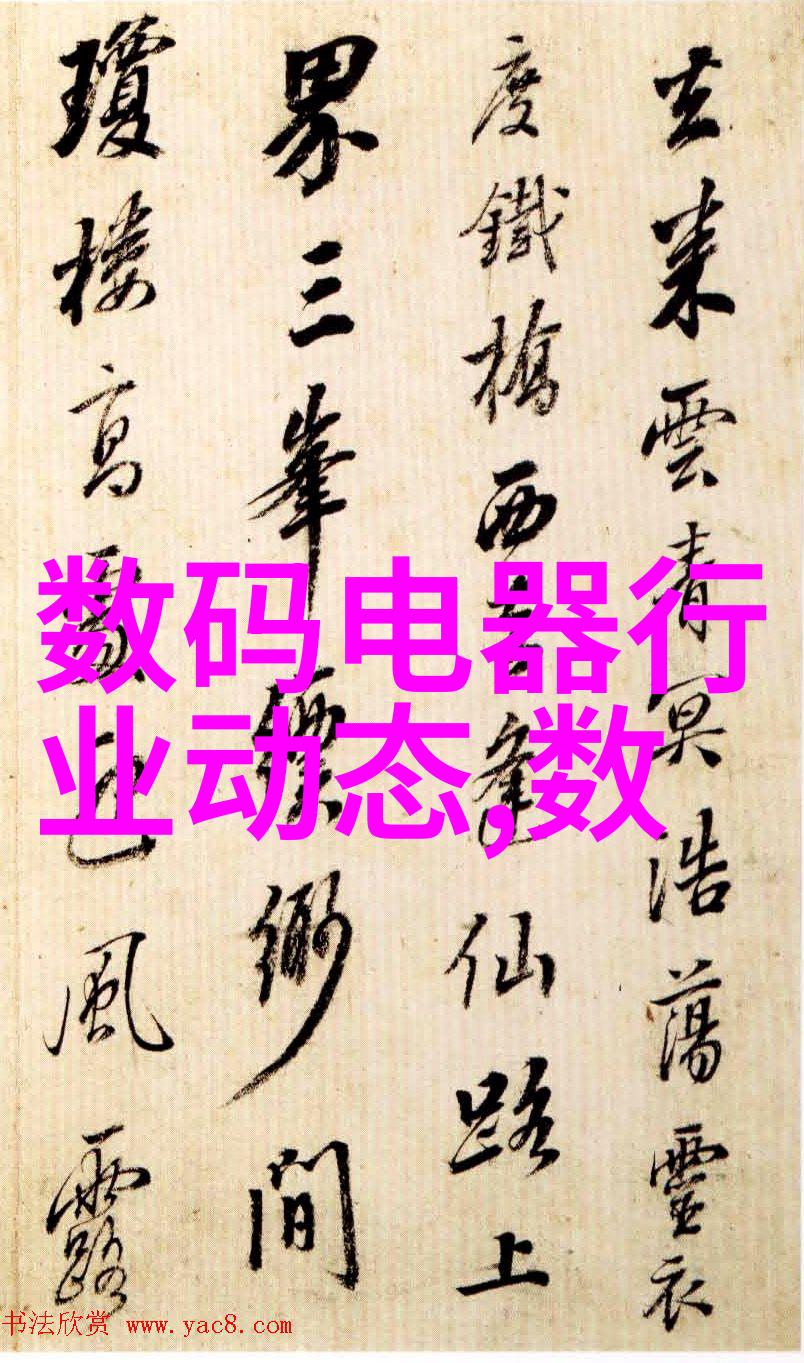 去来雲青冥浩蕩靈衣
度鐵橋西逢仙路上
界三峯縹緲間
瓊樓高處已風露
数码电器行
业动态,数
书法欣赏 www.yac8.com